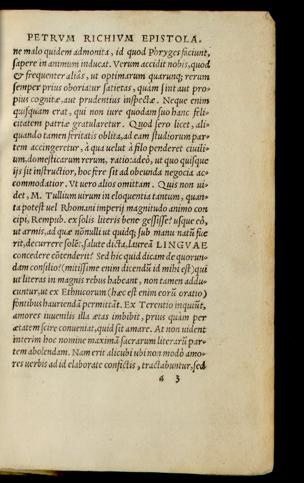 PETRVM RICHIVM EPISTOLA.
ne malo quidem admonita, id quod Phryges faciunt,
sapere in animum inducat. Verum accidit nobis, quod
& frequenter aliâs, ut optimarum quarunq; rerum
semper prius oboriatur satietas, quàm sint aut pro-
pius cognitæ, aut prudentius inspectæ. Neque enim
quisquam erat, qui non iure quodam suo hanc feli-
citatem patriæ gratularetur. Quod sero licet, ali-
quando tamen feritatis oblita, ad eam studiorum par-
tem accingeretur, à qua uelut à filo penderet ciuili-
um, domesticarum rerum, ratio: adeò, ut quo quisque
ijs sit instructior, hoc fere sit ad obeunda negocia ac-
commodatior. Vt uero alios omittam. Quis non ui-
det, M. Tullium uirum in eloquentia tantum, quan-
ta potest uel Rhomani imperij magnitudo animo con
cipi, Rempub. ex solis literis bene gessisse? usque eò,
ut armis, ad quæ nõnulli ut quidq; sub manu natũ fue
rit, decurrere solẽt, salute dicta, laureã LINGVAE
concedere cõtenderit? Sed hic quid dicam de quorun-
dam consilio? (mitissime enim dicendũ id mihi est) qui
ut literas in magnis rebus habeant, non tamen addu-
cuntur, ut ex Ethnicorum (hæc est enim eorũ oratio)
fontibus hauriendã permittãt. Ex Terentio inquiũt,
amores iuuenilis illa ætas imbibit, prius quàm per
ætatem scire conueniat, quid sit amare. At non uident
interim hoc nomine maximã sacrarum literarũ par-
tem abolendam. Nam erit alicubi ubi non modò amo-
res uerbis ad id elaborate confictis, tractabuntur, sed
a 3